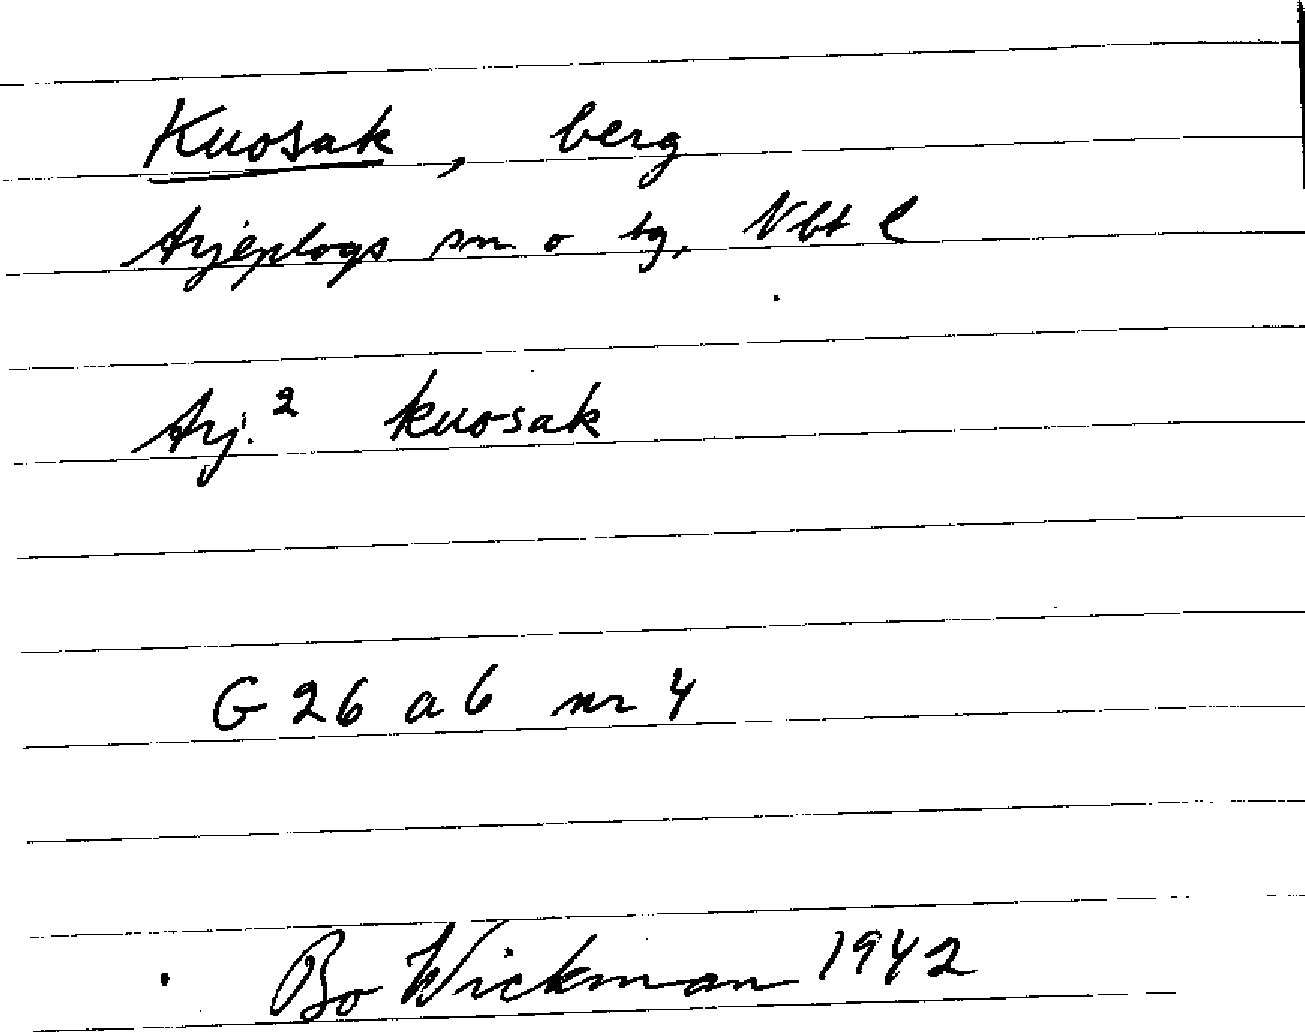 Kuosak, berg
Arjeplogs sn o tg, Nbt l
Arj.² kuosak
G 26 a b nr 4
Bo Wickman 1942